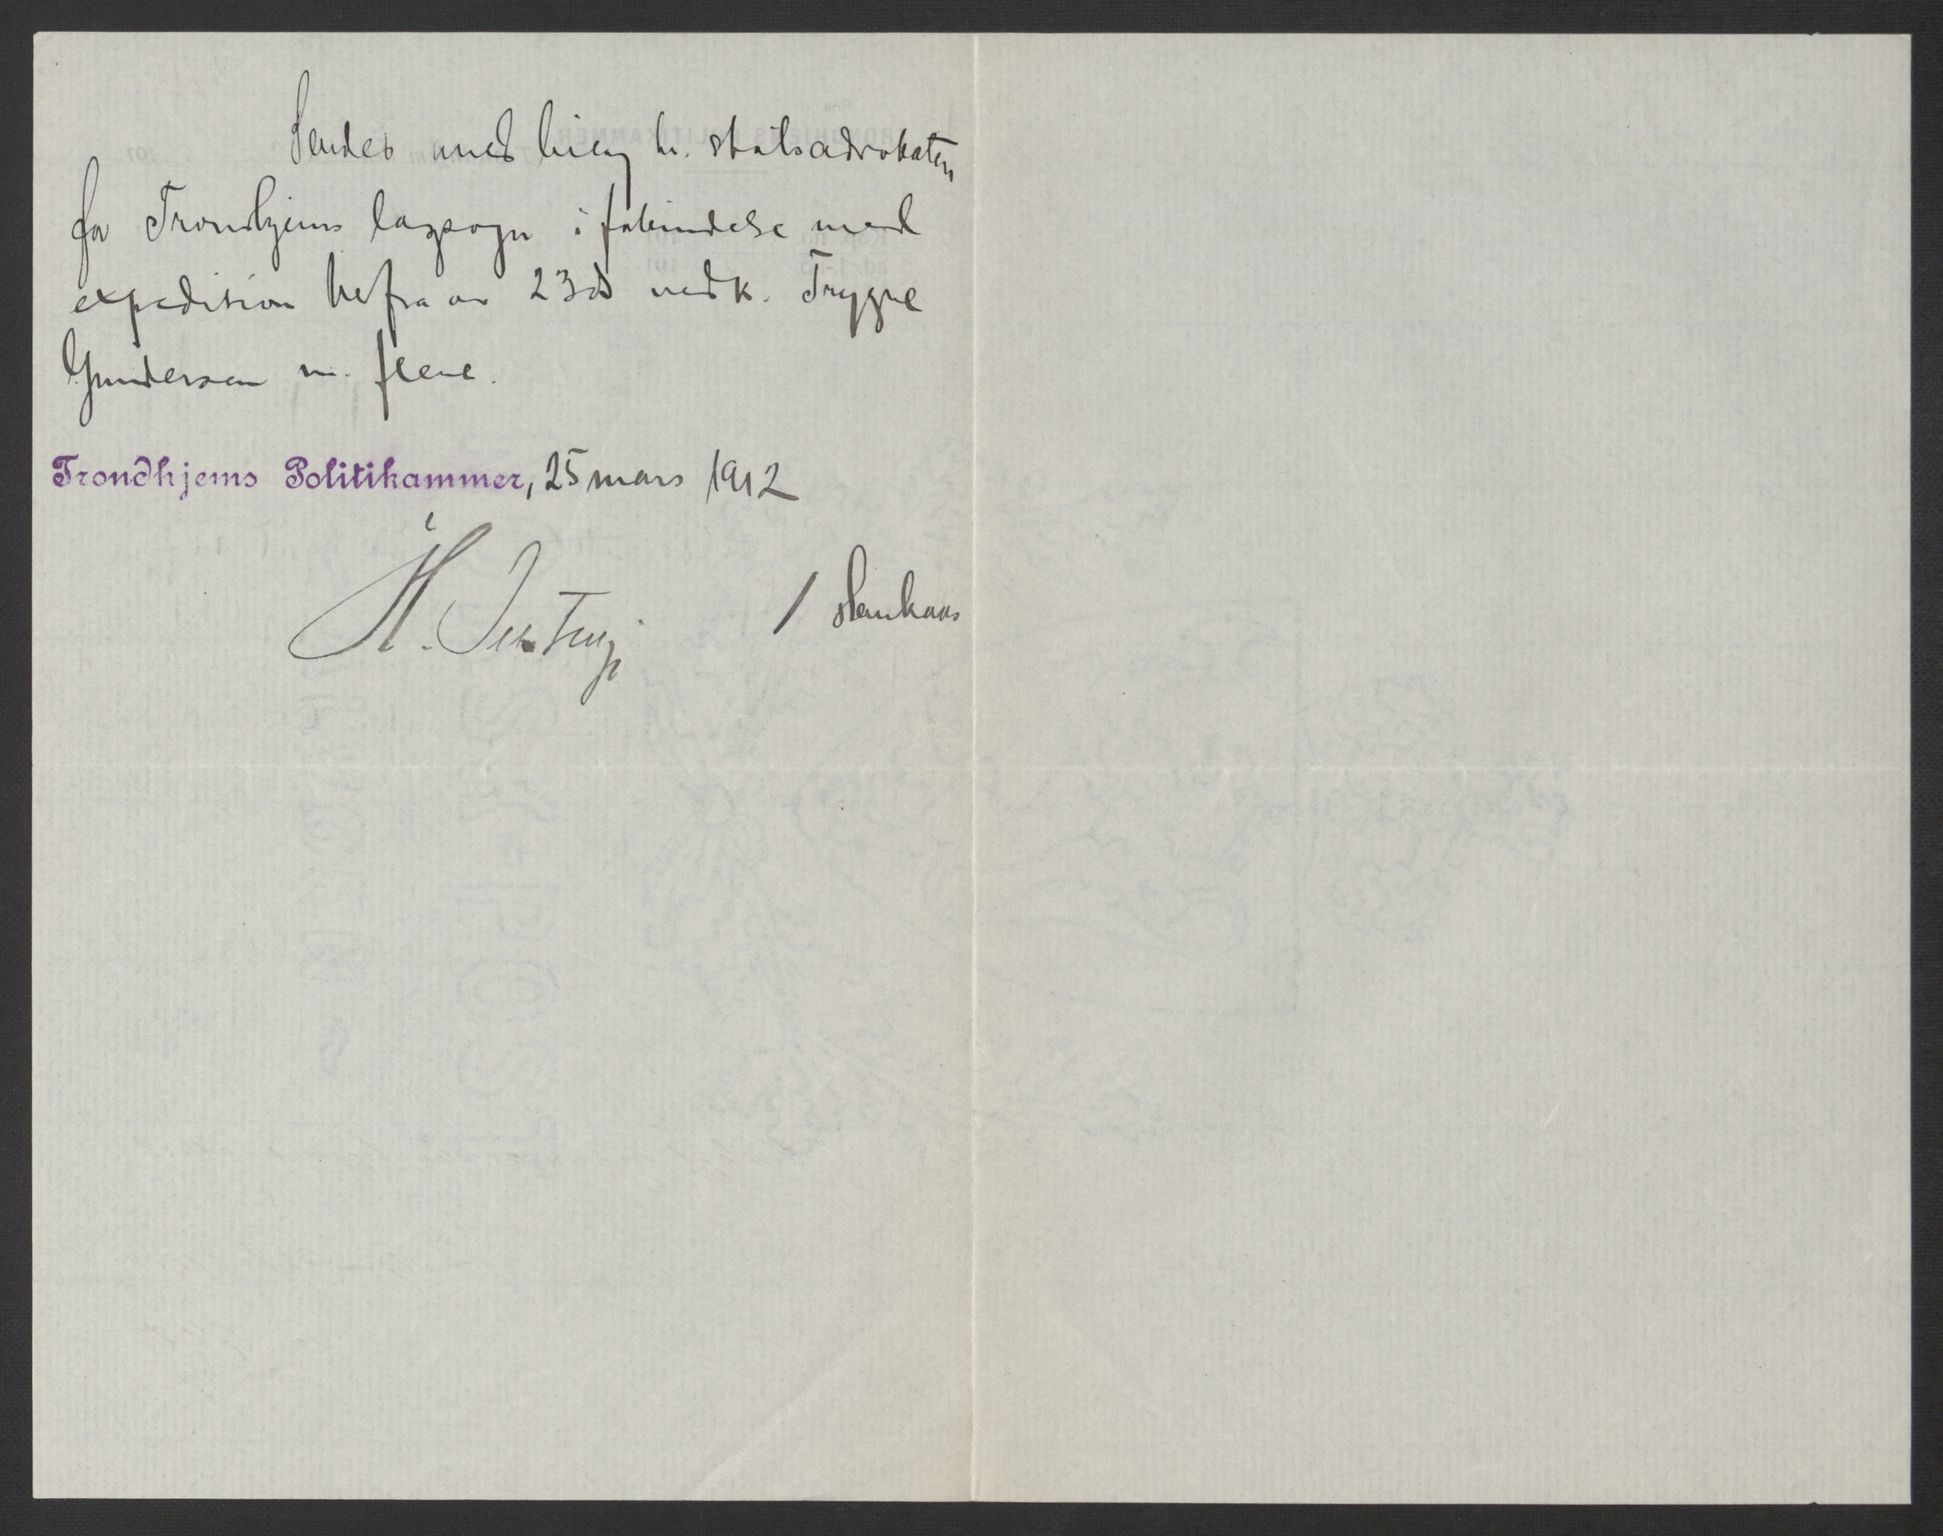 Sendes med bilag hr. statsadvokaten
for Trondhjems lagsogn i forbindelse med
expedition herfra av 23ds vedk. Trygve
Gundersen m. flere.
Trondhjems Politikammer, 25 mars 1912
H.
/ Haukaas